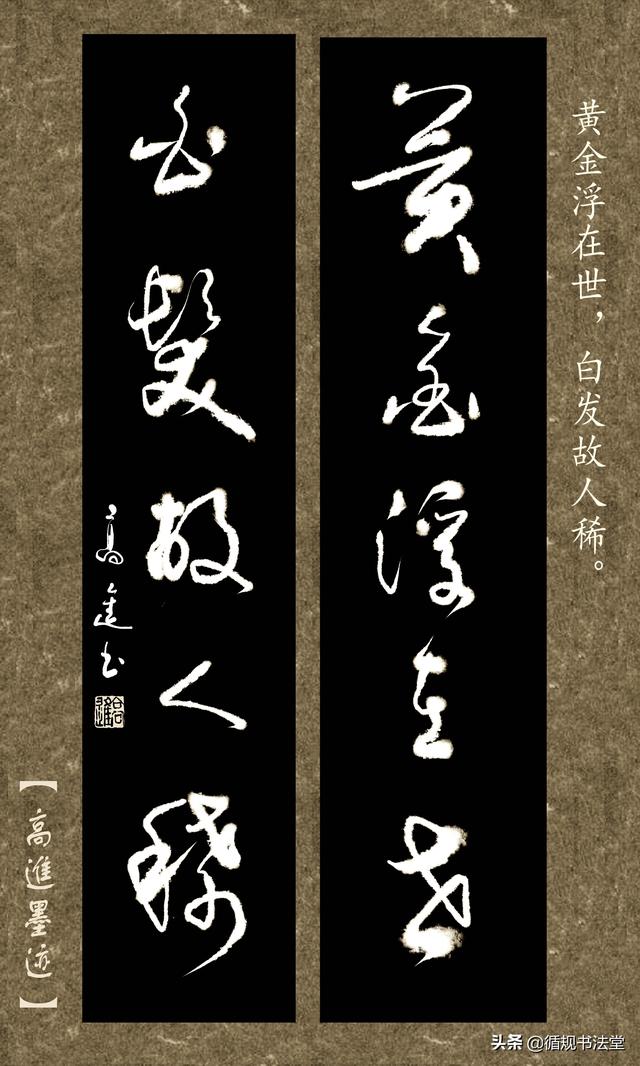 黄金浮在世，白发故人稀。
黄金浮在世
白髮故人稀
高進书
【高進墨迹】
头条 @循规书法堂